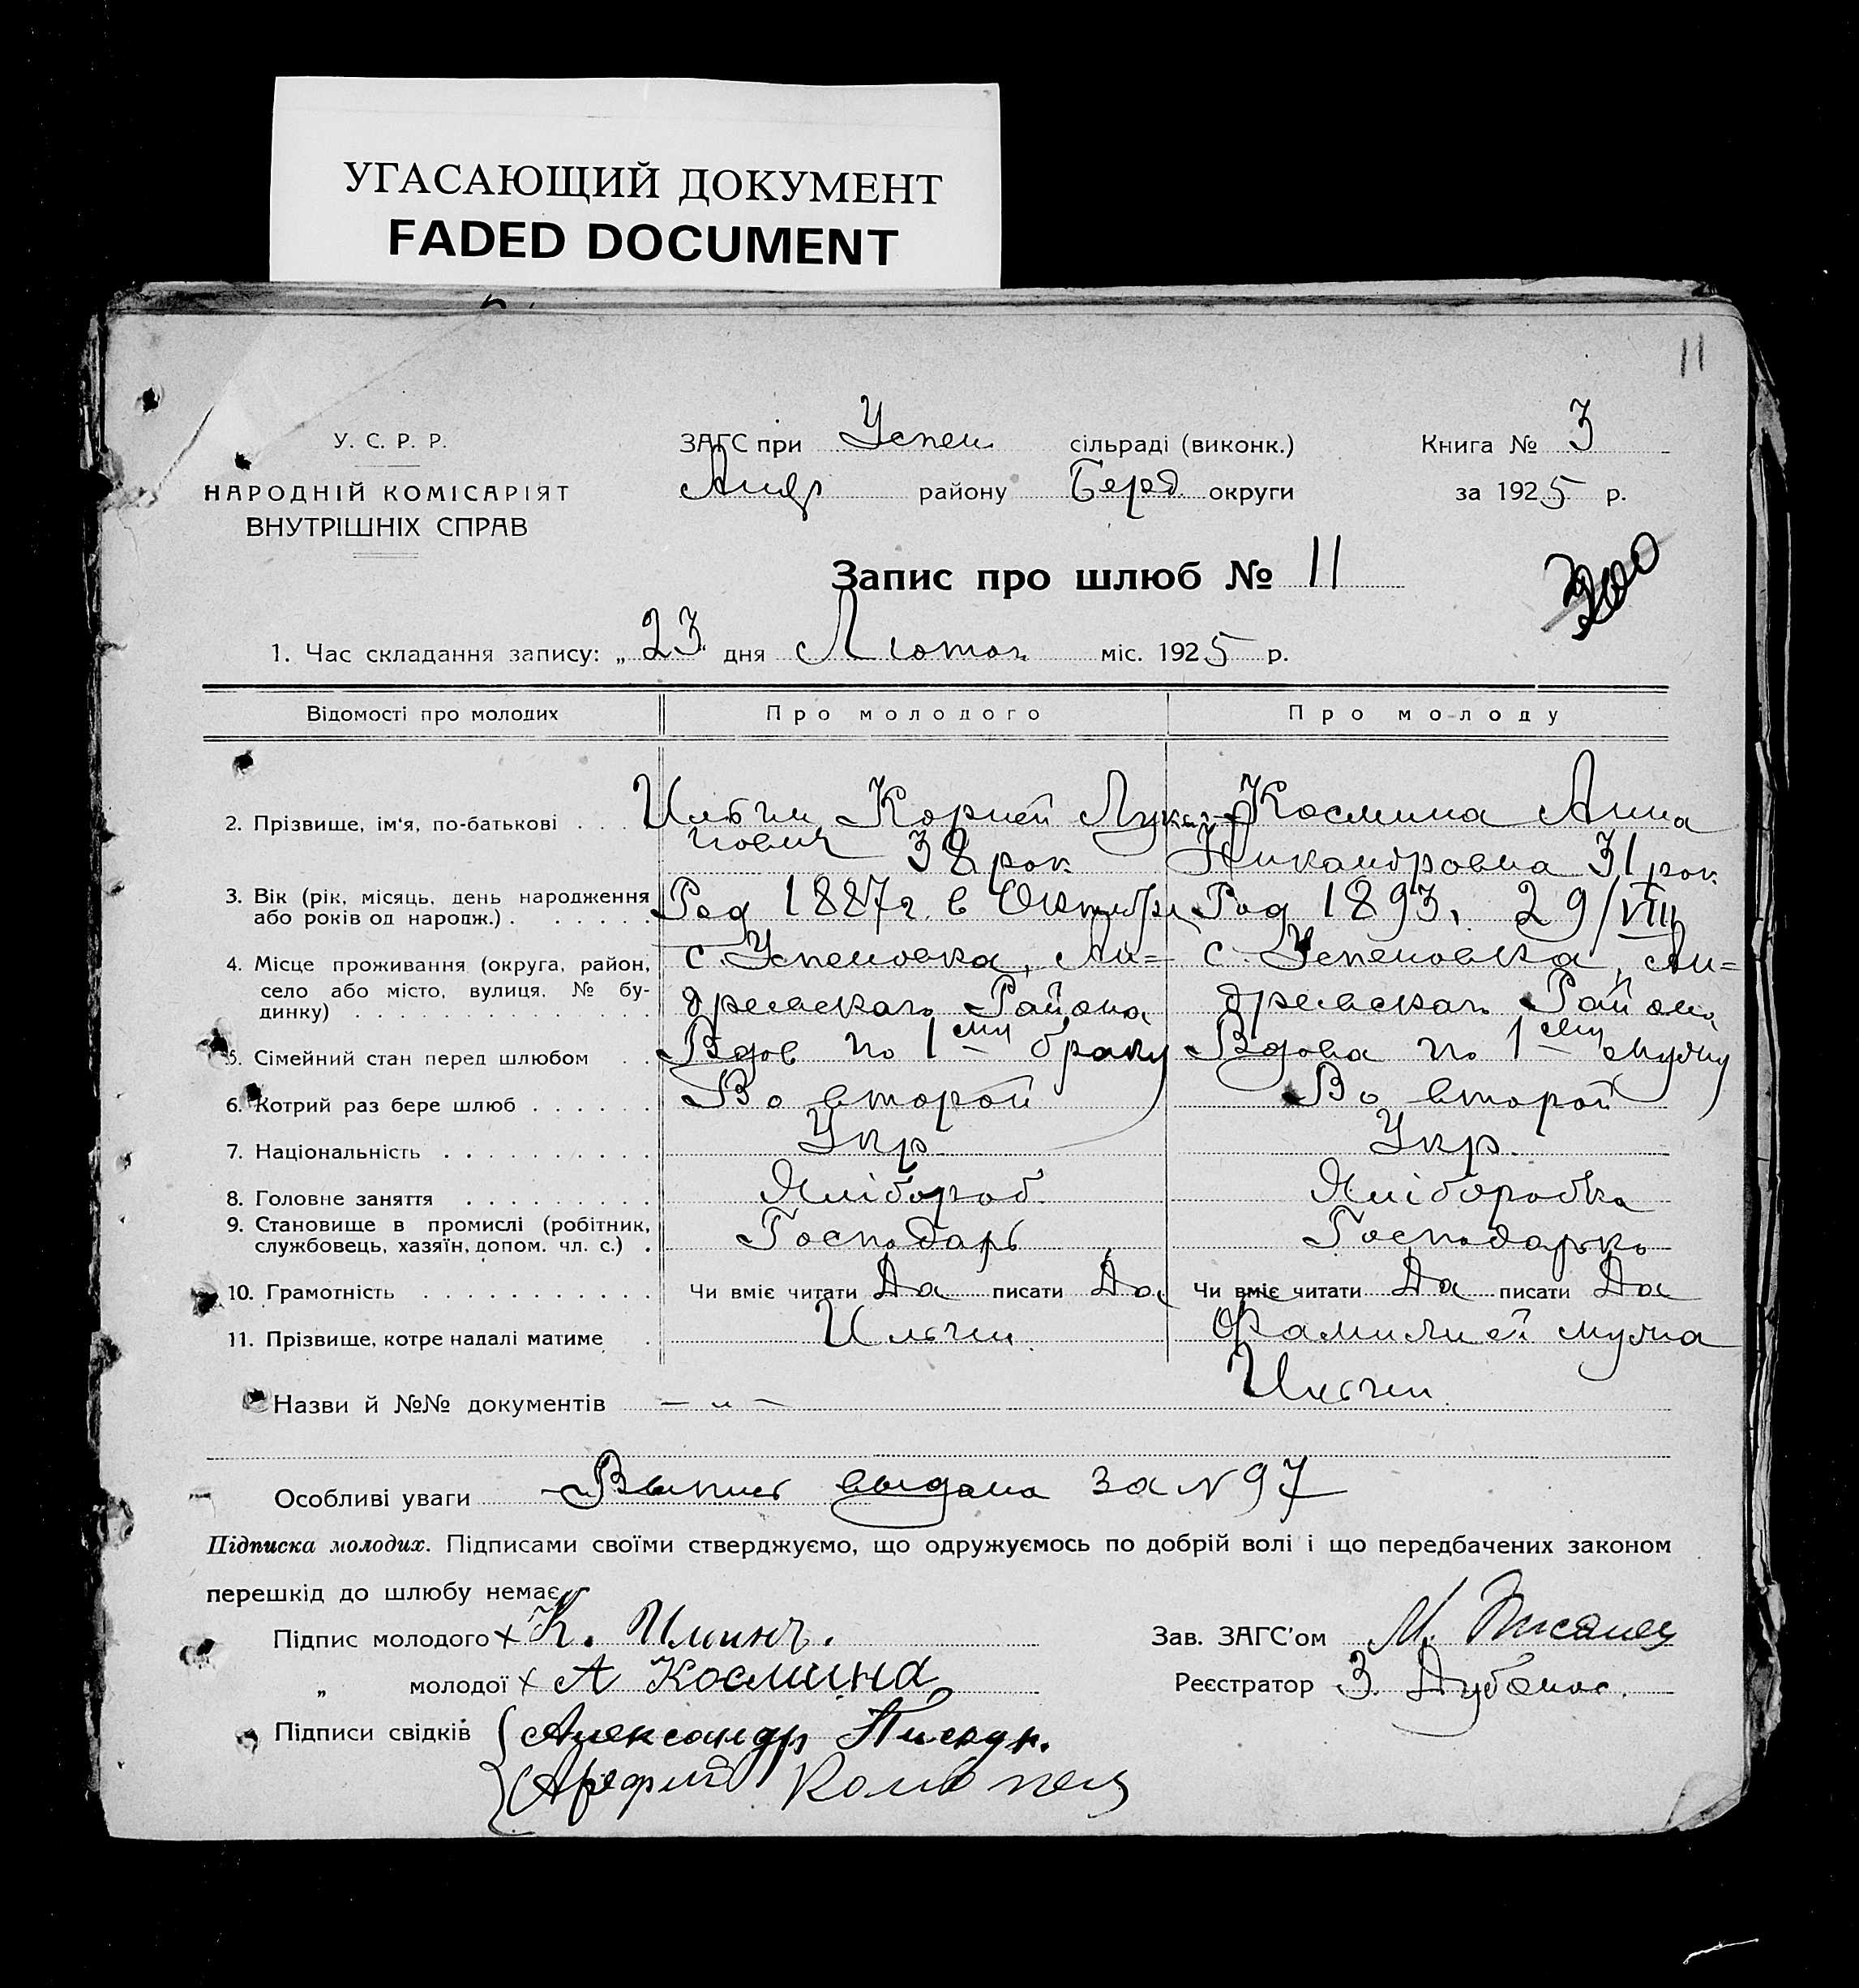 УГАСАЮЩИЙ ДОКУМЕНТ
FADED DOCUMENT
11
У. С. Р. Р.
НАРОДНІЙ КОМІСАРІЯТ
ВНУТРІШНІХ СПРАВ
ЗАГС при Успен сільраді (виконк.)
Андр району Берд. округи
Книга № 3
за 1925 р.
Запис про шлюб № 11
1. Час складання запису: „ 23 дня Лютого міс. 1925 р.
Відомості про молодих Про молодого Про молоду
2. Прізвище, ім'я, по-батькові . . . Ильчин Корней Лукья- Космина Анна
нович 38 рок Никандровна 31 рок
3. Вік (рік, місяць, день народження
або років од народж.) . . . . . . Род 1887 г. в Октябре Род 1893, 29/VIII
4. Місце проживання (округа, район,
село або місто, вулиця, № бу-
динку) . . . . . . . . . . . . . .
с. Успеновка, Ан= с. Успеновка, Ан=
дреевскаго Района дреевскаго Района
5. Сімейний стан перед шлюбом . . Вдов по 1му браку Вдова по 1му мужу
6. Котрий раз бере шлюб . . . . . . Во второй Во второй
7. Національність . . . . . . . . . . Укр Укр.
8. Головне заняття . . . . . . . . . Хлібороб. Хліборобка
9. Становище в промислі (робітник,
службовець, хазяїн, допом. чл. с.) . Господарь Господарька
10. Грамотність . . . . . . . . . . . Чи вміє читати Да писати Да Чи вміє читати Да писати Да
11. Прізвище, котре надалі матиме . Ильчин Фамилией мужа
Ильчин
Назви й №№ документів — „ —
Особливі уваги Выпись выдана за № 97
Підписка молодих. Підписами своїми стверджуємо, що одружуємось по добрій волі і що передбачених законом
перешкід до шлюбу немає.
Підпис молодого × К.
Зав. ЗАГС'ом М.
„ молодої × А Космина
Реєстратор З.
Підписи свідків Александр